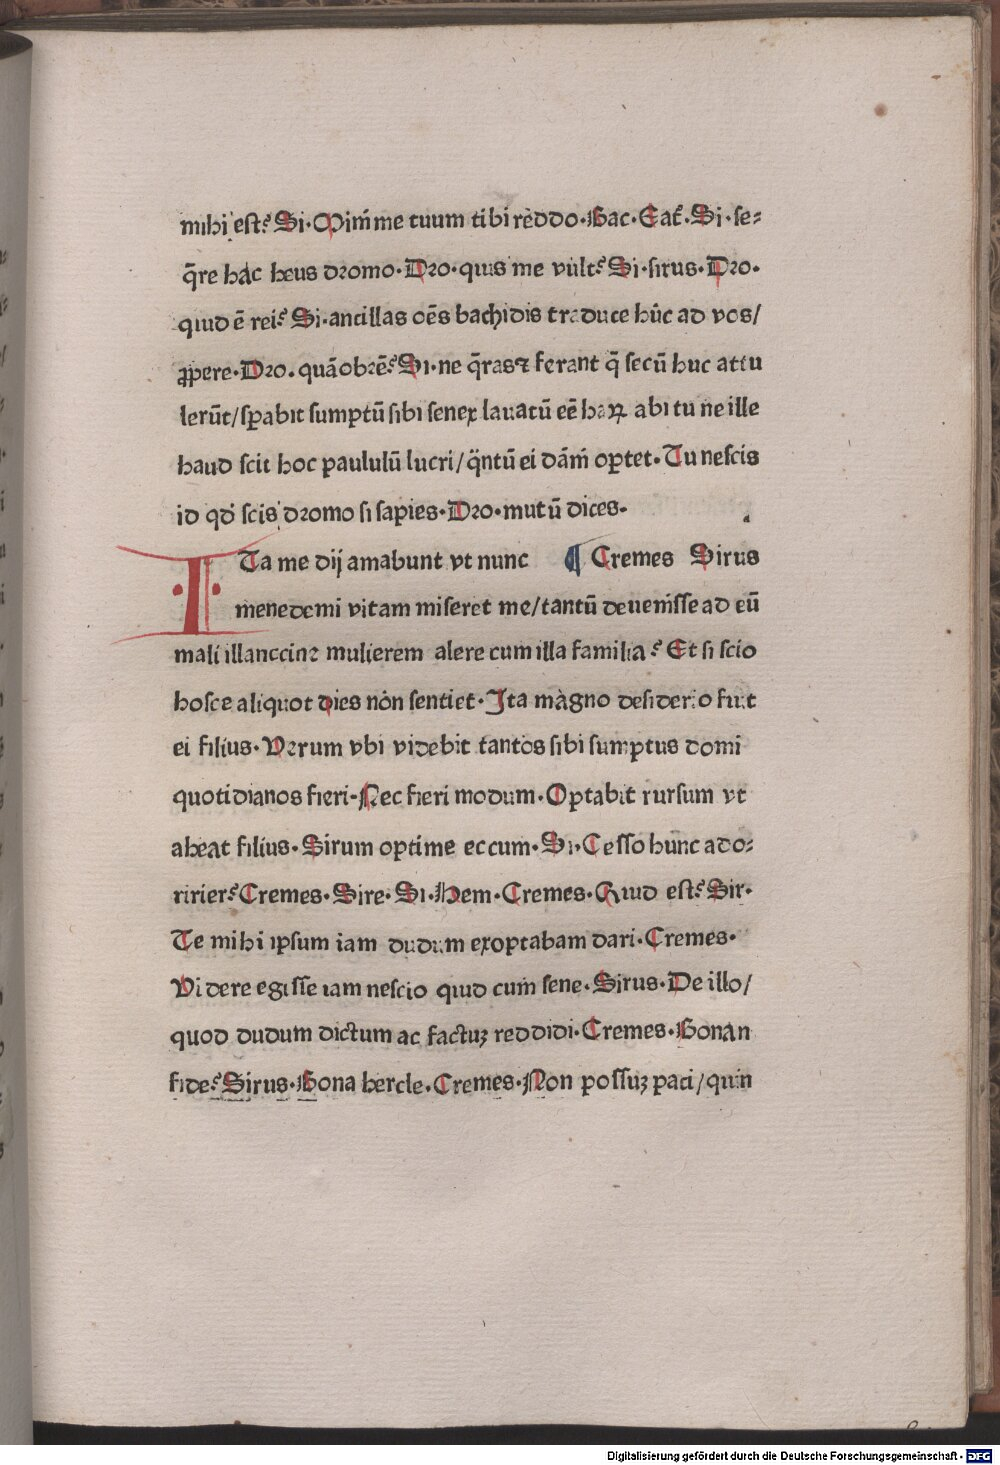 mihi est? Si. Minime tuum tibi reddo. Bac. Eat̄. Si. se⸗
q̄re hac heus dromo. Dro. quis me vult? Si. sirus. Dro.
quid ē rei? Si. ancillas oēs bachidis traduce hūc ad vos/
ꝓpere. Dro. quāobrē? Si. ne q̄ras ⁊ ferant q̄ secū huc attu
lerūt/ sꝑabit sumptū sibi senex lauatū eē haꝝ abi tu ne ille
haud scit hoc paululū lucri/ q̄ntū ei dām̄ oꝑtet. Tu nescis
id qd̄ scis dromo si sapies. Dro. mutū dices.
ITa me dij amabunt vt nunc ¶ Cremes Sirus
menedemi vitam miseret me/ tantū deuenisse ad eū
mali illanccine mulierem alere cum illa familia? Et si scio
hosce aliquot dies non sentiet. Ita magno desiderio fuit
ei filius. Verum vbi videbit tantos sibi sumptus domi
quotidianos fieri. Nec fieri modum. Optabit rursum vt
abeat filius. Sirum optime eccum. Si. Cesso hunc ado⸗
ririer? Cremes. Sire. Si. Hem. Cremes. Quid est? Sir.
Te mihi ipsum iam dudum exoptabam dari. Cremes.
Videre egisse iam nescio quid cum sene. Sirus. De illo/
quod dudum dictum ac factuꝫ reddidi. Cremes. Bonan
fide? Sirus. Bona hercle. Cremes. Non possuꝫ pati/ quin
Digitalisierung gefördert durch die Deutsche Forschungsgemeinschaft - DFG